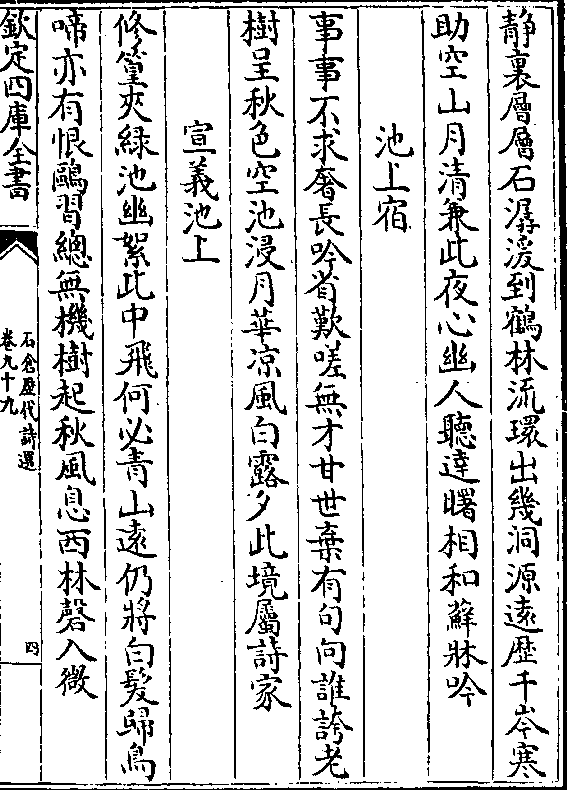 靜裏層層石潺湲到鶴林流環出幾洞源遠歴千岑寒
助空山月清兼此夜心幽人聽達曙相和蘚牀吟
池上宿
事事不求奢長吟省歎嗟無才甘世棄有句向誰誇老
樹呈秋色空池浸月華凉風白露夕此境屬詩家
宣義池上
修篁夾綠池幽絮此中飛何必青山遠仍將白髮歸鳥
啼亦有恨鷗習總無機樹起秋風息西林磬入微
欽定四庫全書
石倉歷代詩選
卷九十九
四